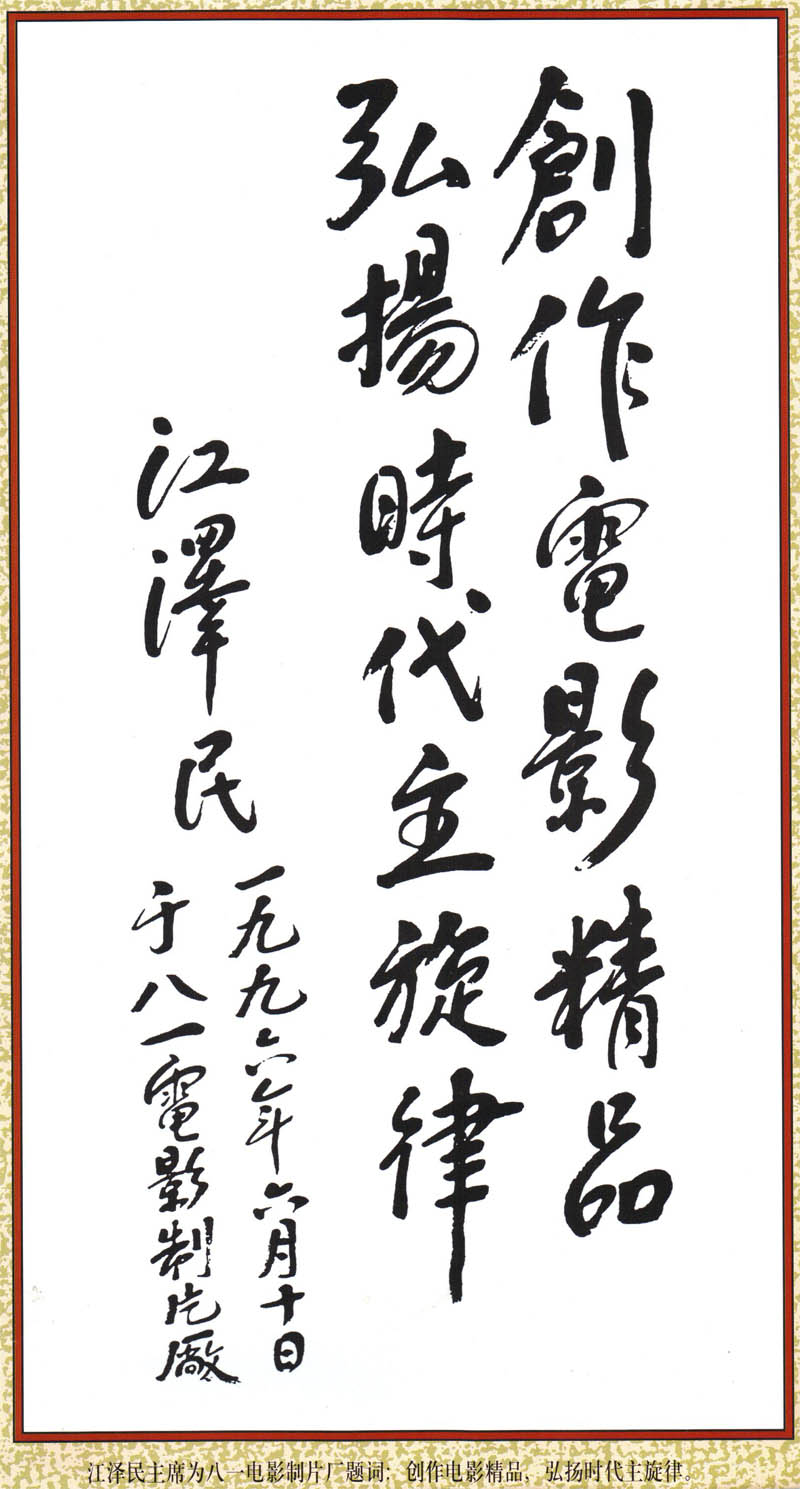 創作電影精品
弘揚時代主旋律
江澤民
一九九六年六月十日
于八一電影制片廠
江泽民主席为八一电影制片厂题词：创作电影精品，弘扬时代主旋律。